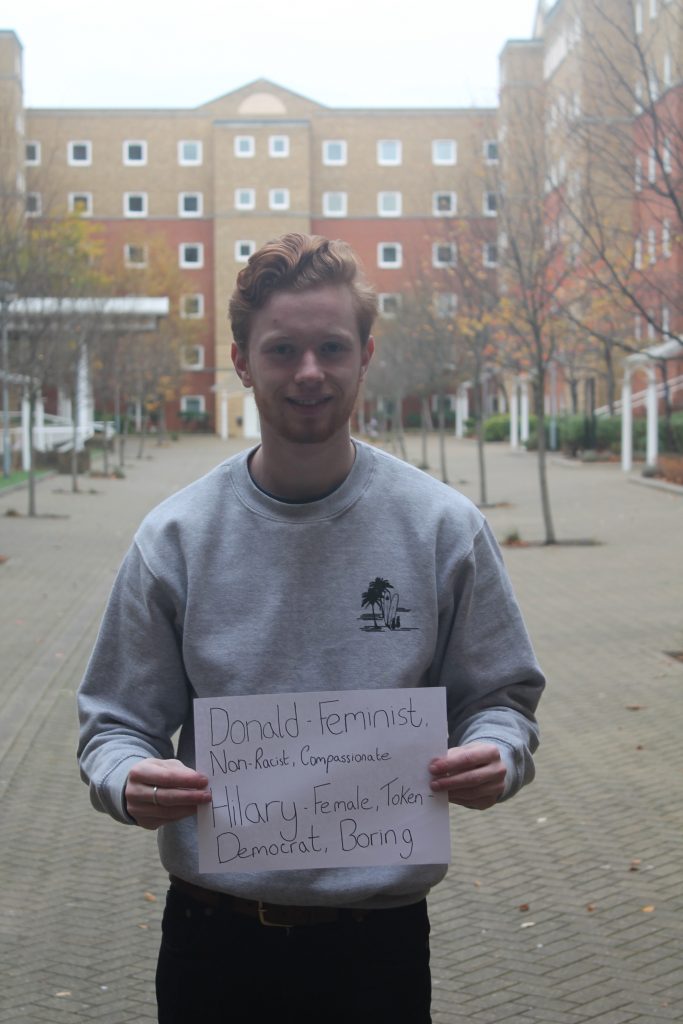 Donald - Feminist,
Non-Racist, Compassionate
Hilary - Female, Token -
Democrat, Boring